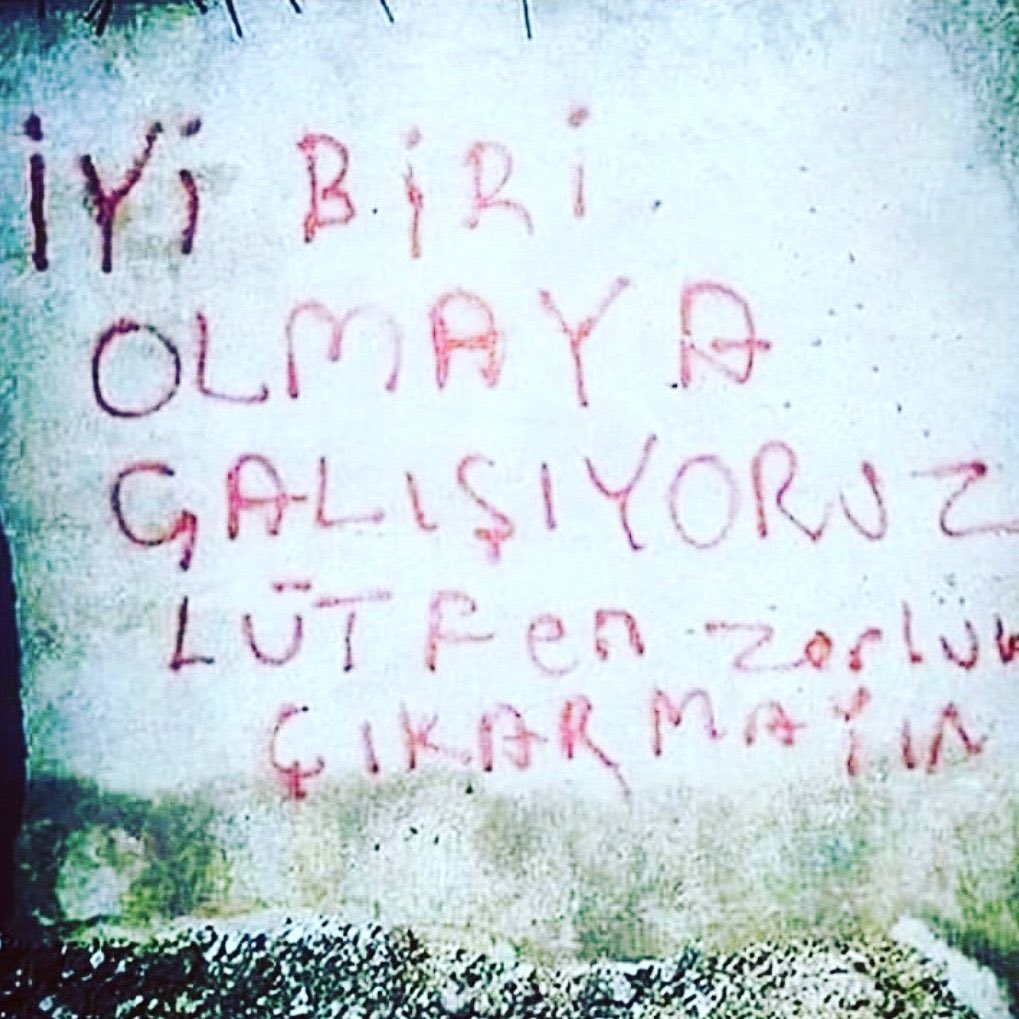 İYİ BİRİ
OLMAYA
ÇALIŞIYORUZ
LÜTFen zorluk
ÇIKARMAYIN